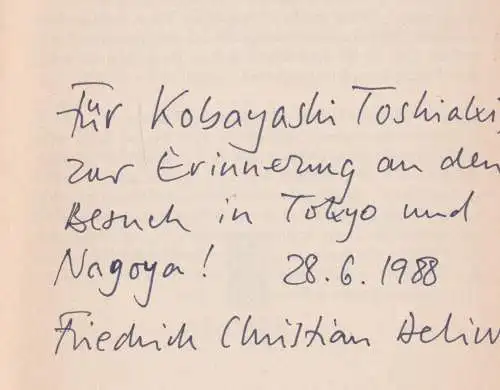 Für Kobayashi Toshiaki,
zur Erinnerung an den
Besuch in Tokyo und
Nagoya! 28.6.1988
Friedrich Christian